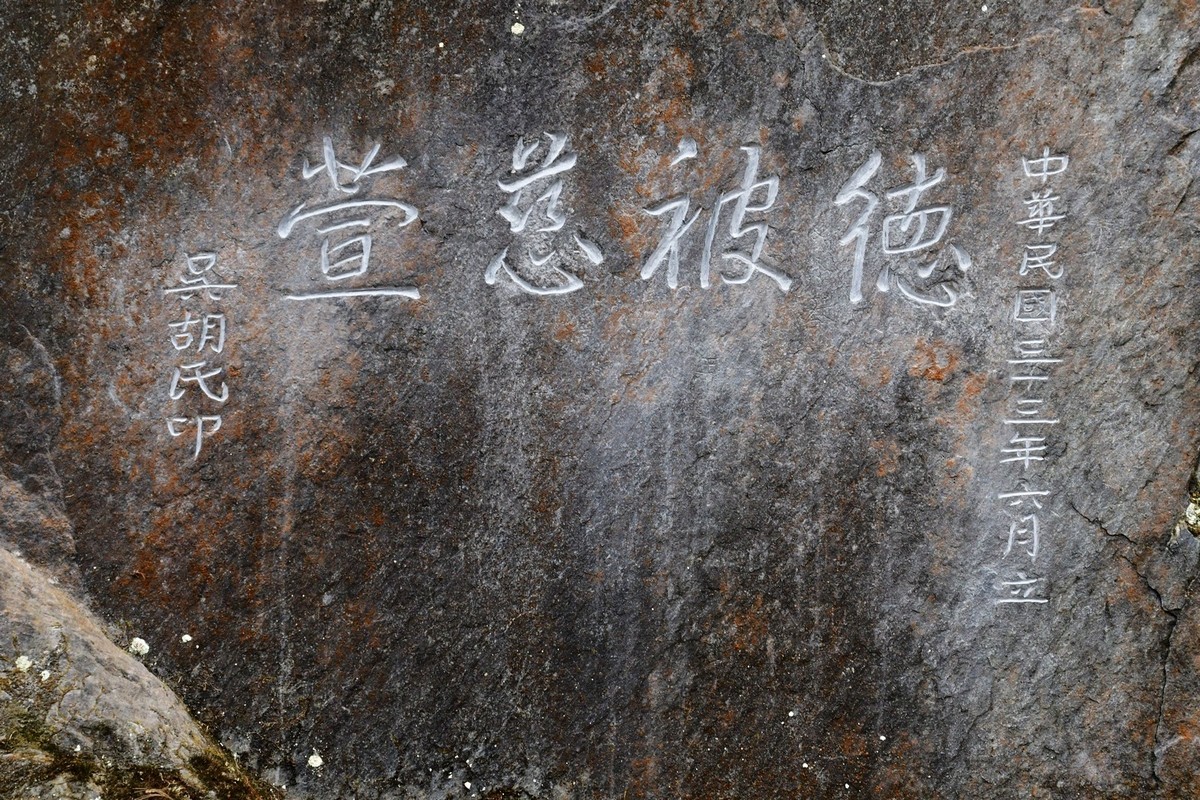 中華民國三十三年六月立
德被慈萱
吳胡民印